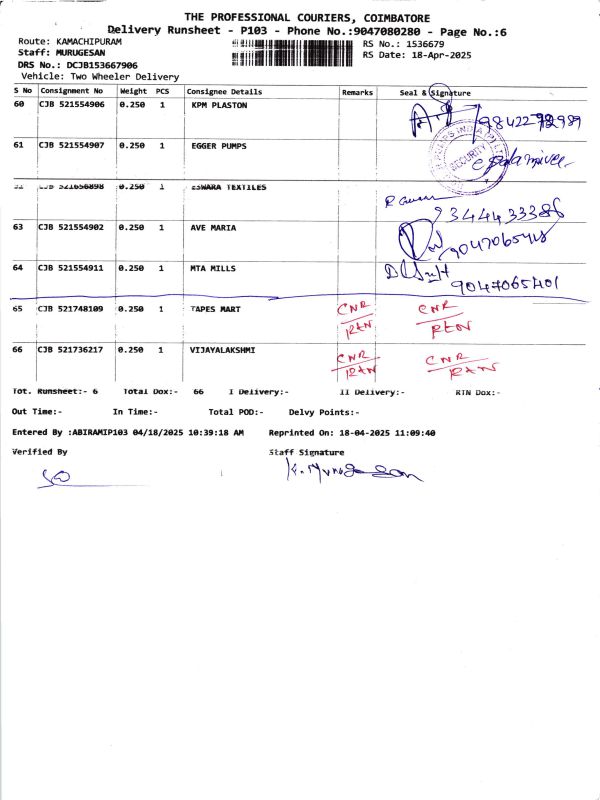 THE PROFESSIONAL COURIERS, COIMBATORE
Delivery Runsheet - P103 - Phone No.:9047080280 - Page No.:6
Route: KAMACHIPURAM
RS No.: 1536679
Staff: MURUGESAN
RS Date: 18-Apr-2025
DRS No.: DCJB153667906
Vehicle: Two Wheeler Delivery
S No Consignment No Weight PCS Consignee Details Remarks Seal & Signature
60 CJB 521554906 0.250 1 KPM PLASTON
61 CJB 521554907 0.250 1 EGGER PUMPS
SECURITY
CJB 521656898 0.250 1 ESWARA TEXTILES
9344433386
63 CJB 521554902 0.250 1 AVE MARIA
64 CJB 521554911 0.250 1 MTA MILLS
9047065401
65 CJB 521748109 0.250 1 TAPES MART CNR CNR
RTN RTN
66 CJB 521736217 0.250 1 VIJAYALAKSHMI CNR CNR
RTN RTN
Tot. Runsheet:- 6 Total Dox:- 66 I Delivery:- II Delivery:- RTN Dox:-
Out Time:- In Time:- Total POD:- Delvy Points:-
Entered By :ABIRAMIP103 04/18/2025 10:39:18 AM Reprinted On: 18-04-2025 11:09:40
Verified By Staff Signature